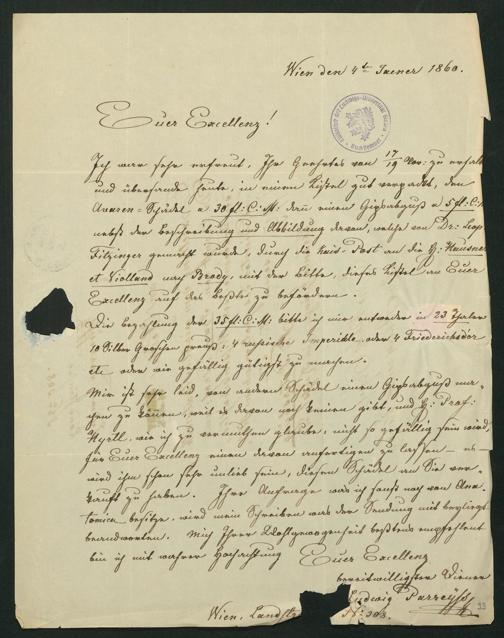 Wien den 4t Jaener 1860.
Euer Excellenz!
Ich war sehr erfreut, Ihr Geehrtes vom 17/19 Nov: zu erhalt
und übersende heute, in einem Kistel gut verpackt, den
Avaren-Schädel a 30 fl: C: M: dann einen Gipsabguß a 5 fl: C:
nebst der Beschreibung und Abbildung davon, welche von Dr: Leop
Fitzinger gemacht wurde, durch die kais: Post an die H: Hausner
et Violland nach Brody, mit der Bitte, dieses Kistel an Euer
Excellenz auf das beßte zu befördern.
Die Bezahlung der 35 fl: C: M: bitte ich mir entweder in 23 Thaler
10 Silber Groschen preuß: 4 russische Imperiale, oder 4 Friedrichsdor
etc oder wie gefällig gütigst zu machen.
Mir ist sehr leid, von andern Schädel einen Gipsabguß ma-
chen zu können, weil es davon noch keinen gibt, und H: Prof:
Hyrtl, wie ich zu vermuthen glaube, nicht so gefällig sein wird,
für Euer Excellenz einen davon anfertigen zu laßen – es
wird ihm schon sehr unlieb sein, diesen Schädel an Sie ver-
kauft zu haben. Ihre Anfrage was ich sonst noch von Ana-
tomica besitze, wird mein Schreiben was der Sendung mit beyliegt
beantworten. Mich Ihrer Wohlgewogenheit beßtens empfehlend
bin ich mit wahrer Hochachtung Euer Excellenz
bereitwilligster Diener
Ludwig Parreyss
Wien, Landst
No: 303.
33